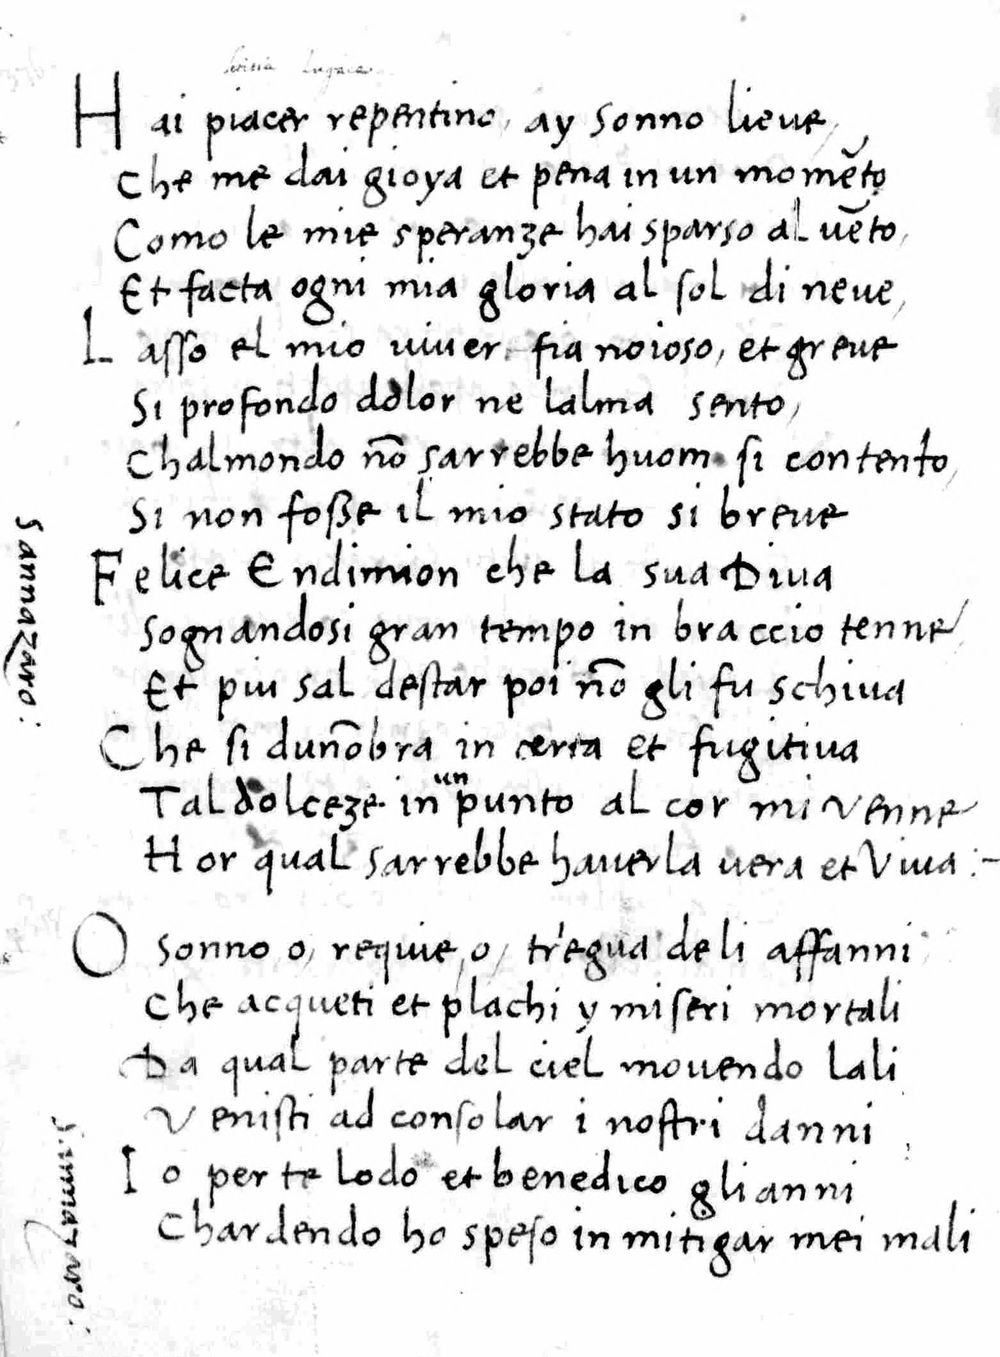 Hai piacer repentino, ay sonno lieue,
Che me dai gioya et pena in un momẽto
Como le mie speranze hai sparso al uẽto,
Et facta ogni mia gloria al sol di neue,
Lasso el mio uiuer fia noioso, et greue
Si profondo dolor ne lalma sento,
Chalmondo nõ sarrebbe huom si contento,
Si non foße il mio stato si breue
Felice Endimion che la sua Diua
Sognandosi gran tempo in braccio tenne
Et piu sal destar poi nõ gli fu schiua
Che si dunõbra in certa et fugitiua
Tal dolceze in un punto al cor mi venne
Hor qual sarrebbe hauerla uera et Viua :-
Sannazaro:
O sonno o, requie, o, tregua deli affanni
Che acqueti et plachi y miseri mortali
Da qual parte del ciel mouendo lali
Venisti ad consolar i nostri danni
Io per te lodo et benedico gli anni
Chardendo ho speso in mitigar mei mali
Sannazaro: